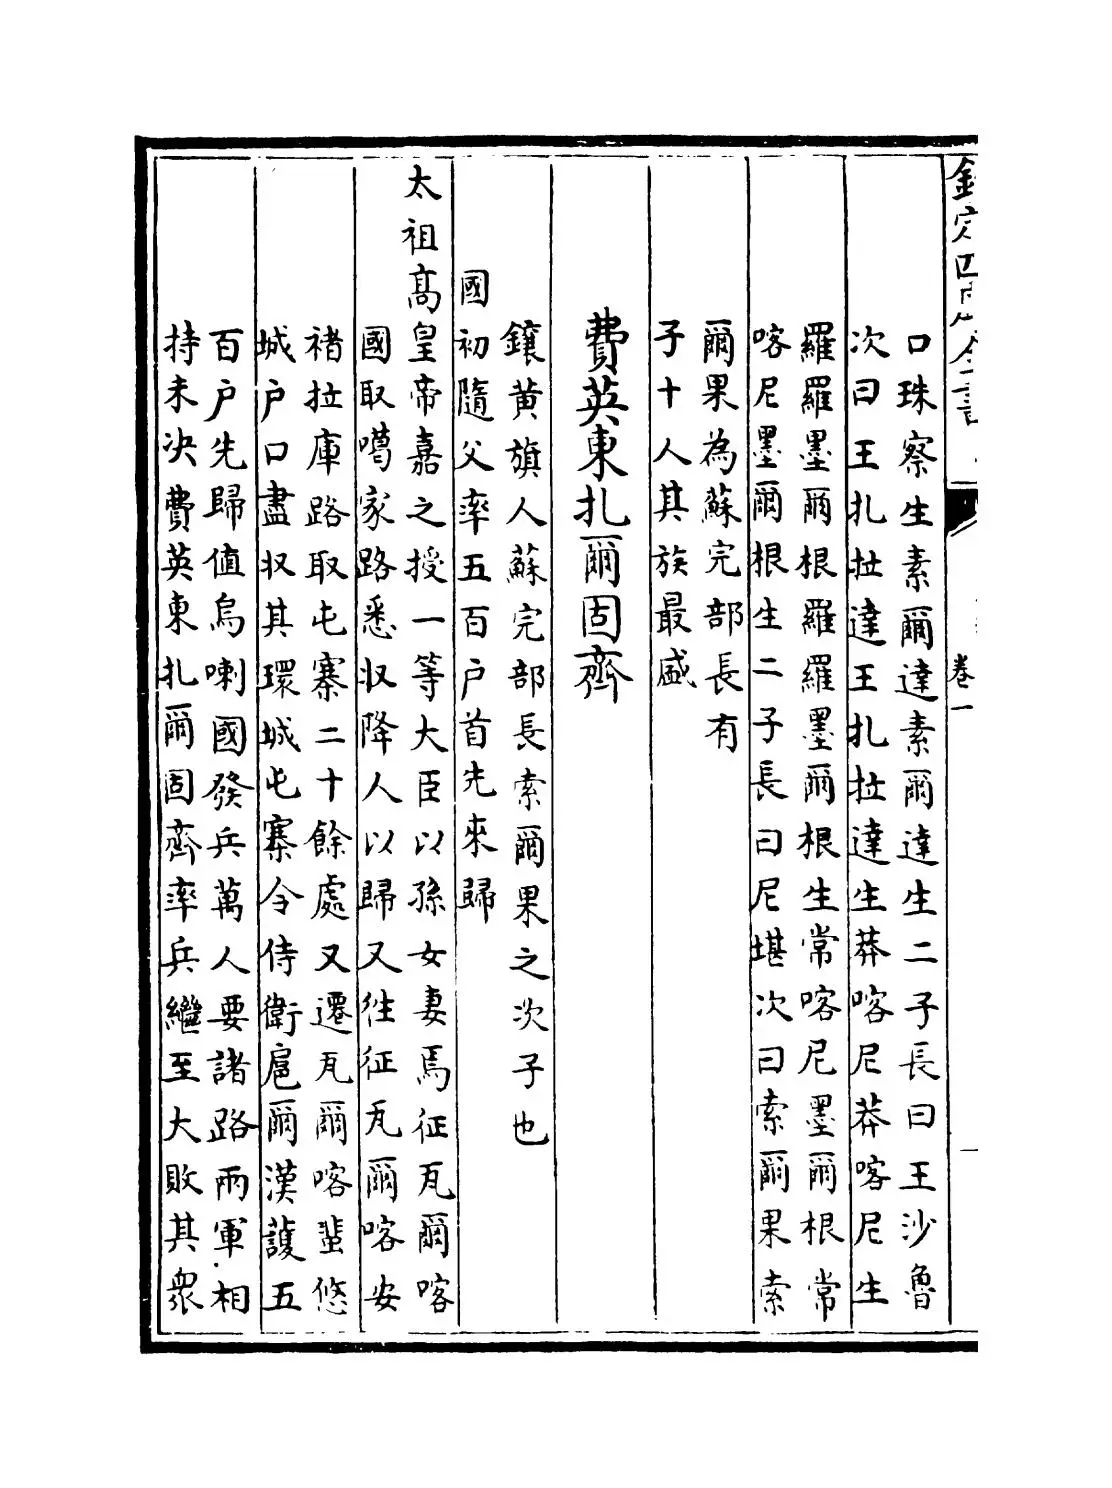 欽定四庫全書
卷一
口珠察生素爾達素爾達生二子長曰王沙魯
次曰王扎拉達王扎拉達生莽喀尼莽喀尼生
羅羅墨爾根羅羅墨爾根生常喀尼墨爾根常
喀尼墨爾根生二子長曰尼堪次曰索爾果索
爾果為蘇完部長有
子十人其族最盛
費英東扎爾固齊
鑲黄旗人蘇完部長索爾果之次子也
國初隨父率五百户首先來歸
太祖髙皇帝嘉之授一等大臣以孫女妻焉征瓦爾喀
國取噶家路悉収降人以歸又往征瓦爾喀安
禇拉庫路取屯寨二十餘處又遷瓦爾喀蜚悠
城户口盡収其環城屯寨令侍衛扈爾漢護五
百户先歸值烏喇國發兵萬人要諸路兩軍相
持未决費英東扎爾固齊率兵繼至大敗其衆